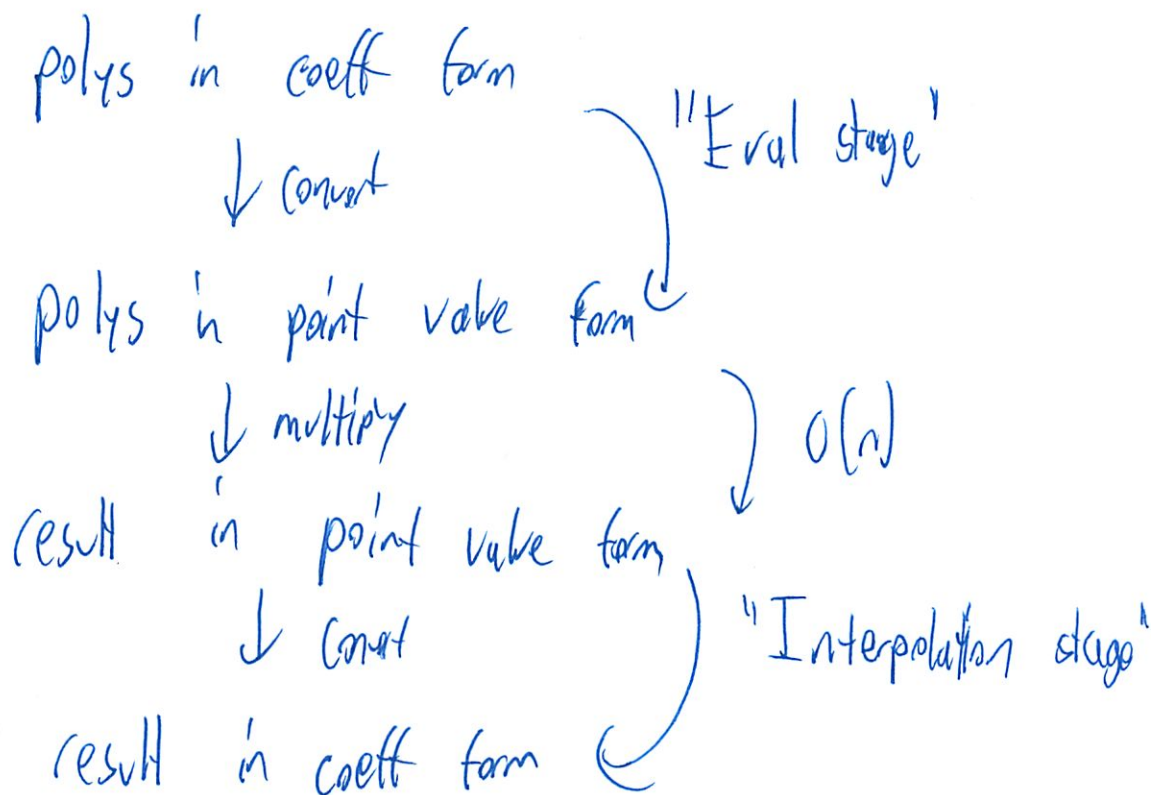 polys in coeff form
"Eval stage"
↓ convert
polys in point value form
↓ multiply
O(n)
result in point value form
↓ convert
"Interpolation stage"
result in coeff form